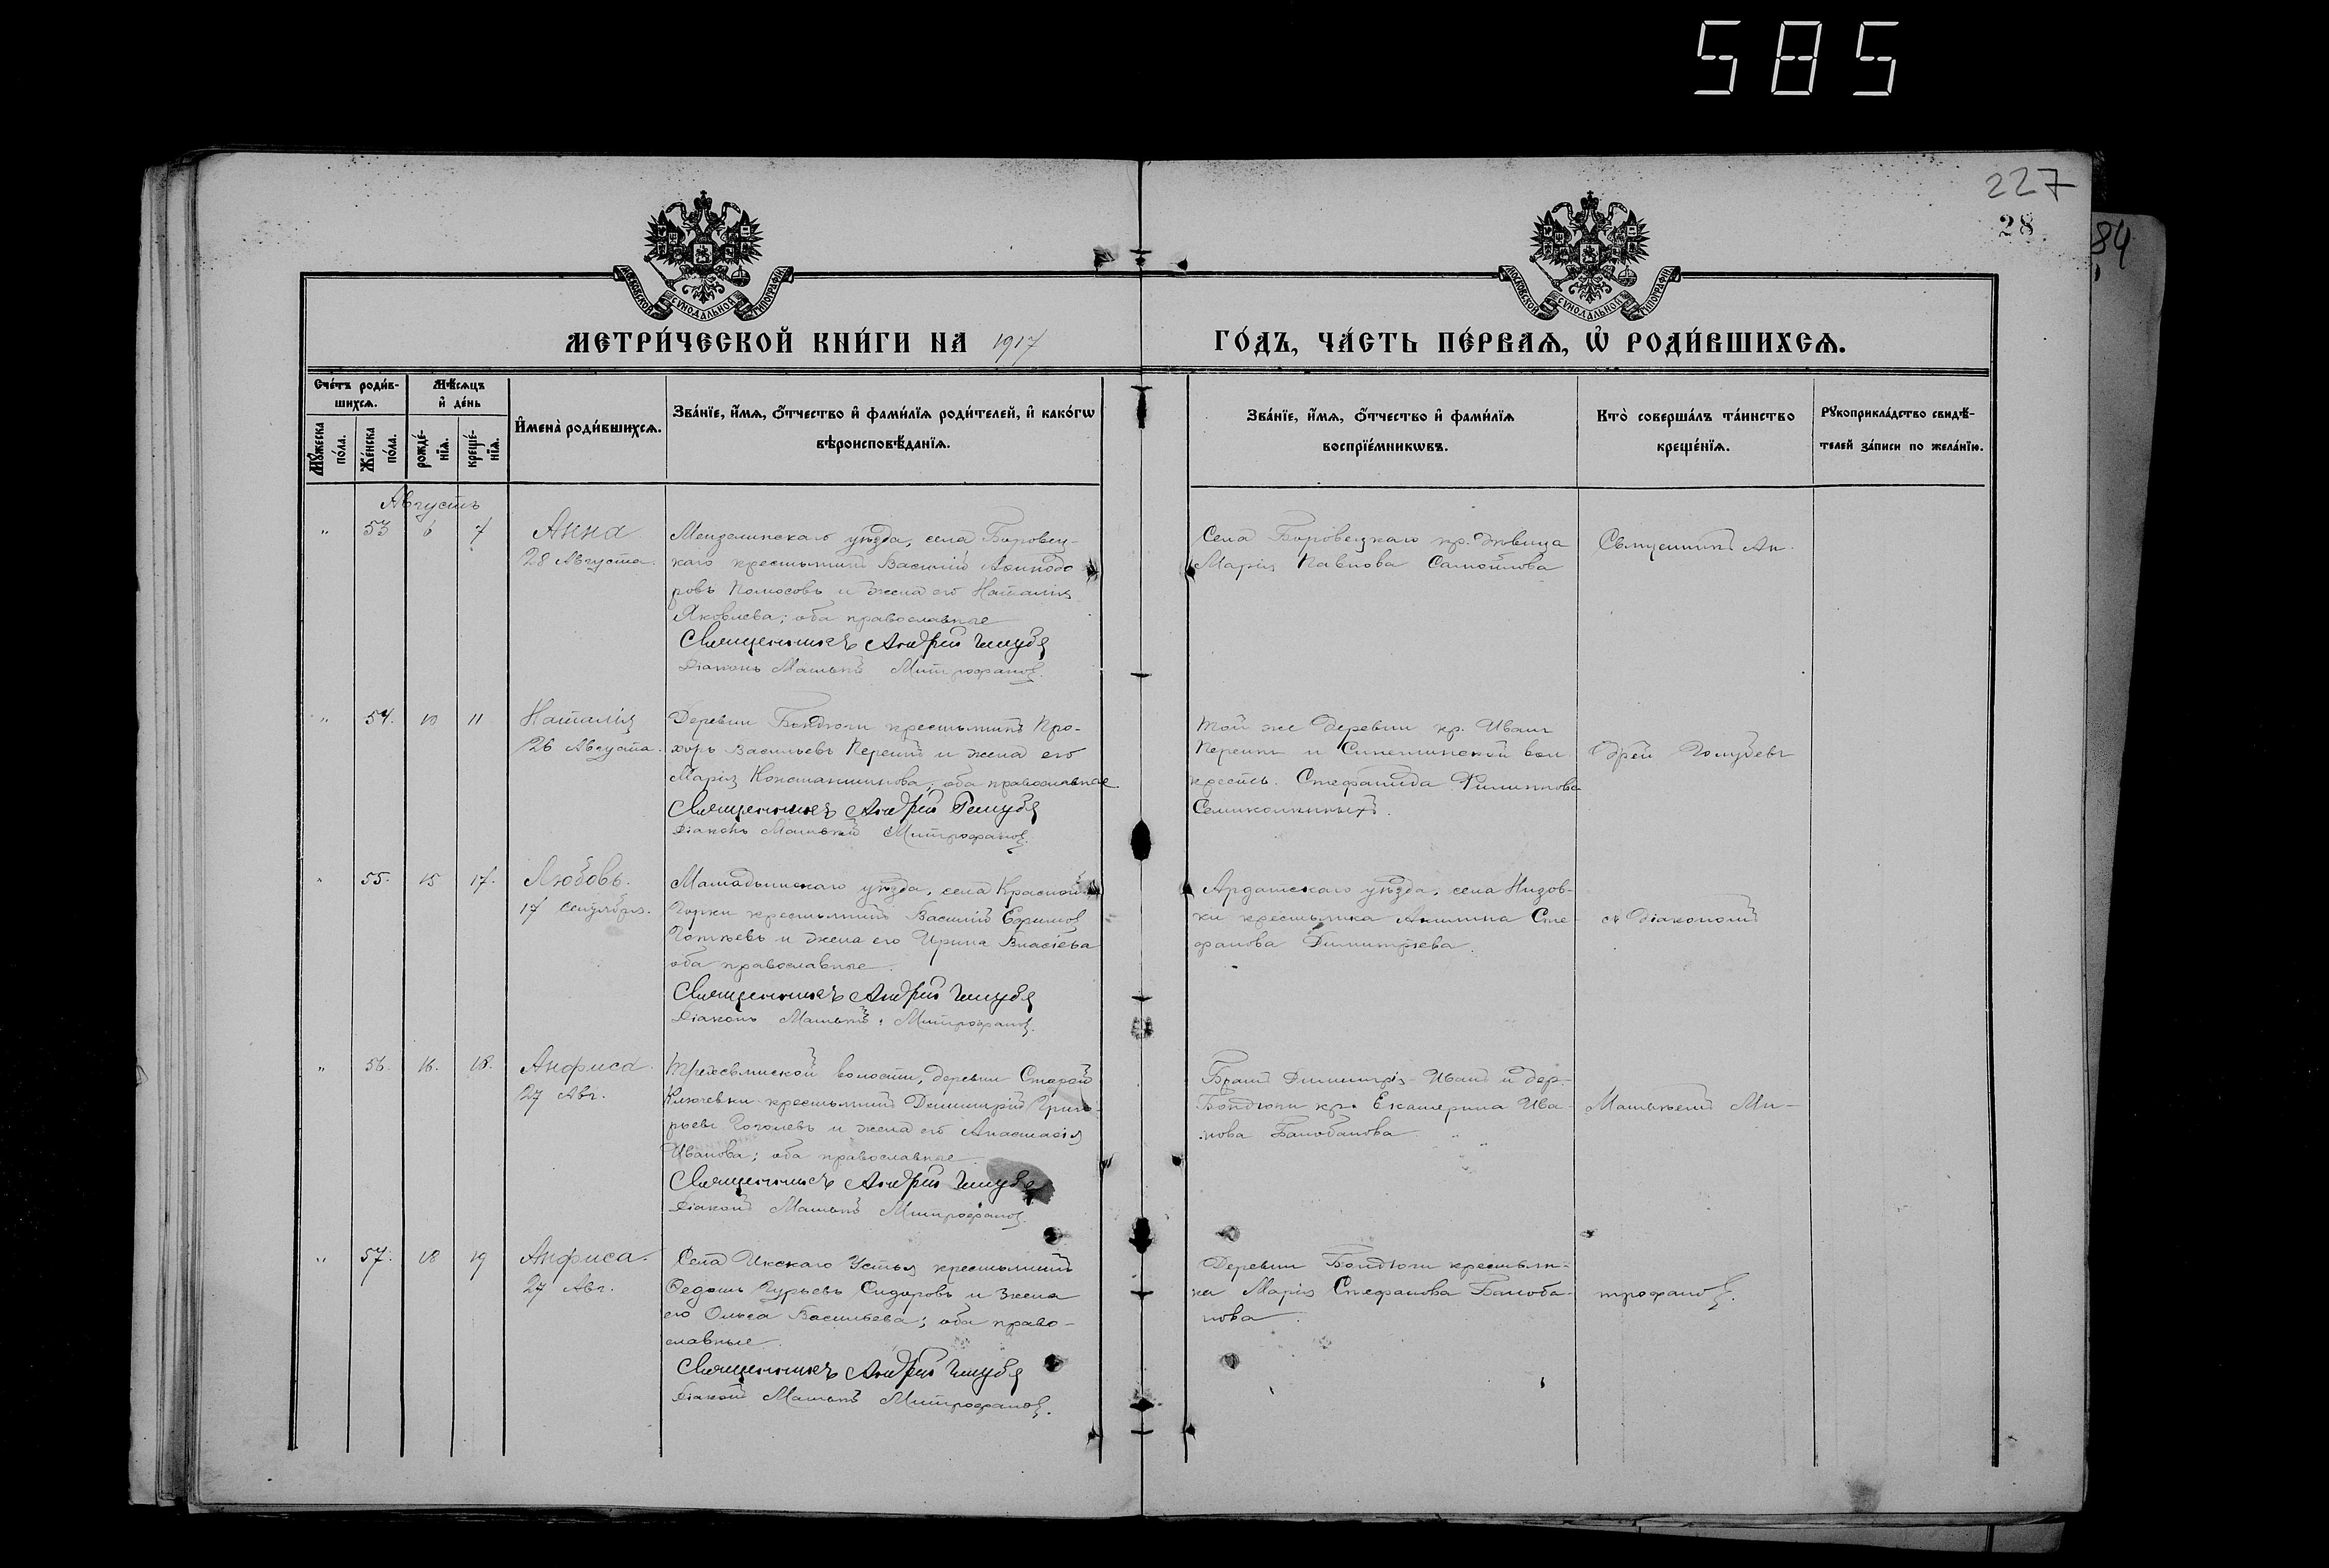 585
227
28
84
МОСКОВСКОЙ СѴНОДАЛЬНОЙ ТИПОГРАФІИ
МОСКОВСКОЙ СѴНОДАЛЬНОЙ ТИПОГРАФІИ
МЕТРИ́ЧЕСКОЙ КНИ́ГИ НА 1917
ГО́ДЪ, ЧА́СТЬ ПЕ́РВАЯ, Ѡ҆ РОДИ́ВШИХСЯ.
Сче́тъ роди́в-
шихся.
Мѣ́сяцъ
и҆ де́нь
Мꙋ́жеска по́ла.
Же́нска по́ла.
рожде́-
нїя.
креще́-
нїя.
И҆мена̀ роди́вшихся.
Зва́нїе, и҆́мя, ѻ҆́тчество и҆ фами́лїя роди́телей, и҆ како́гѡ
вѣроисповѣ́данїя.
Зва́нїе, и҆́мя, ѻ҆́тчество и҆ фами́лїя
воспрїе́мникѡвъ.
Кто̀ соверша́лъ та́инство
креще́нїя.
Рꙋкоприкла́дство свидѣ́-
телей за́писи по жела́нїю.
Августъ
" 53 6 7 Анна
28 Августа.
Мензелинскаго уѣзда, села Боровец-
каго крестьянинъ Василій
ровъ и жена его Наталія
Яковлева; оба православные
Священникъ Андрей Голубевъ
Діаконъ Матѳей Митрофановъ.
Села Боровецкаго кр. дѣвица
Марія Павлова Самойлова
Священникъ Ан-
" 54. 10 11 Наталія
26 Августа.
Деревни Бондюги крестьянинъ Про-
хоръ Васильевъ и жена его
Марія Константинова; оба православные
Священникъ Андрей Голубевъ
Діаконъ Матѳей Митрофановъ.
Той же деревни кр. Иванъ
и вол.
крестьь. Стефанида Филиппова
дрей Голубевъ
" 55. 15 17. Любовь.
17 Сентября.
Мамадышскаго уѣзда, села Красной
Горки крестьянинъ Василій Ефимовъ
и жена его Ирина Власіева
оба православные.
Священникъ Андрей Голубевъ
Діаконъ Матѳей Митрофановъ.
Ардатскаго уѣзда, села Низов-
ки крестьянка Акилина Сте-
фанова Димитріева.
съ діакономъ
" 56. 16. 18. Анфиса.
27 Авг.
Трехсвятской волости, деревни Старой
Ключевки крестьянинъ Димитрій Григо-
рьевъ Гоголевъ и жена его Анастасія
Иванова; оба православные
Священникъ Андрей Голубевъ
Діаконъ Матѳей Митрофановъ.
Братъ Димитрія Иванъ и дер.
Бондюги кр. Екатерина Ива-
нова Балобанова
Матѳеемъ Ми-
" 57. 18 19 Анфиса.
27 Авг.
Села Икскаго Устья крестьянинъ
Ѳедотъ Гурьевъ Сидоровъ и жена
его Ольга Васильева; оба право-
славные.
Священникъ Андрей Голубевъ
Діаконъ Матѳей Митрофановъ.
Деревни Бондюги крестьян-
ка Марія Стефанова Балоба-
нова.
трофановъ.